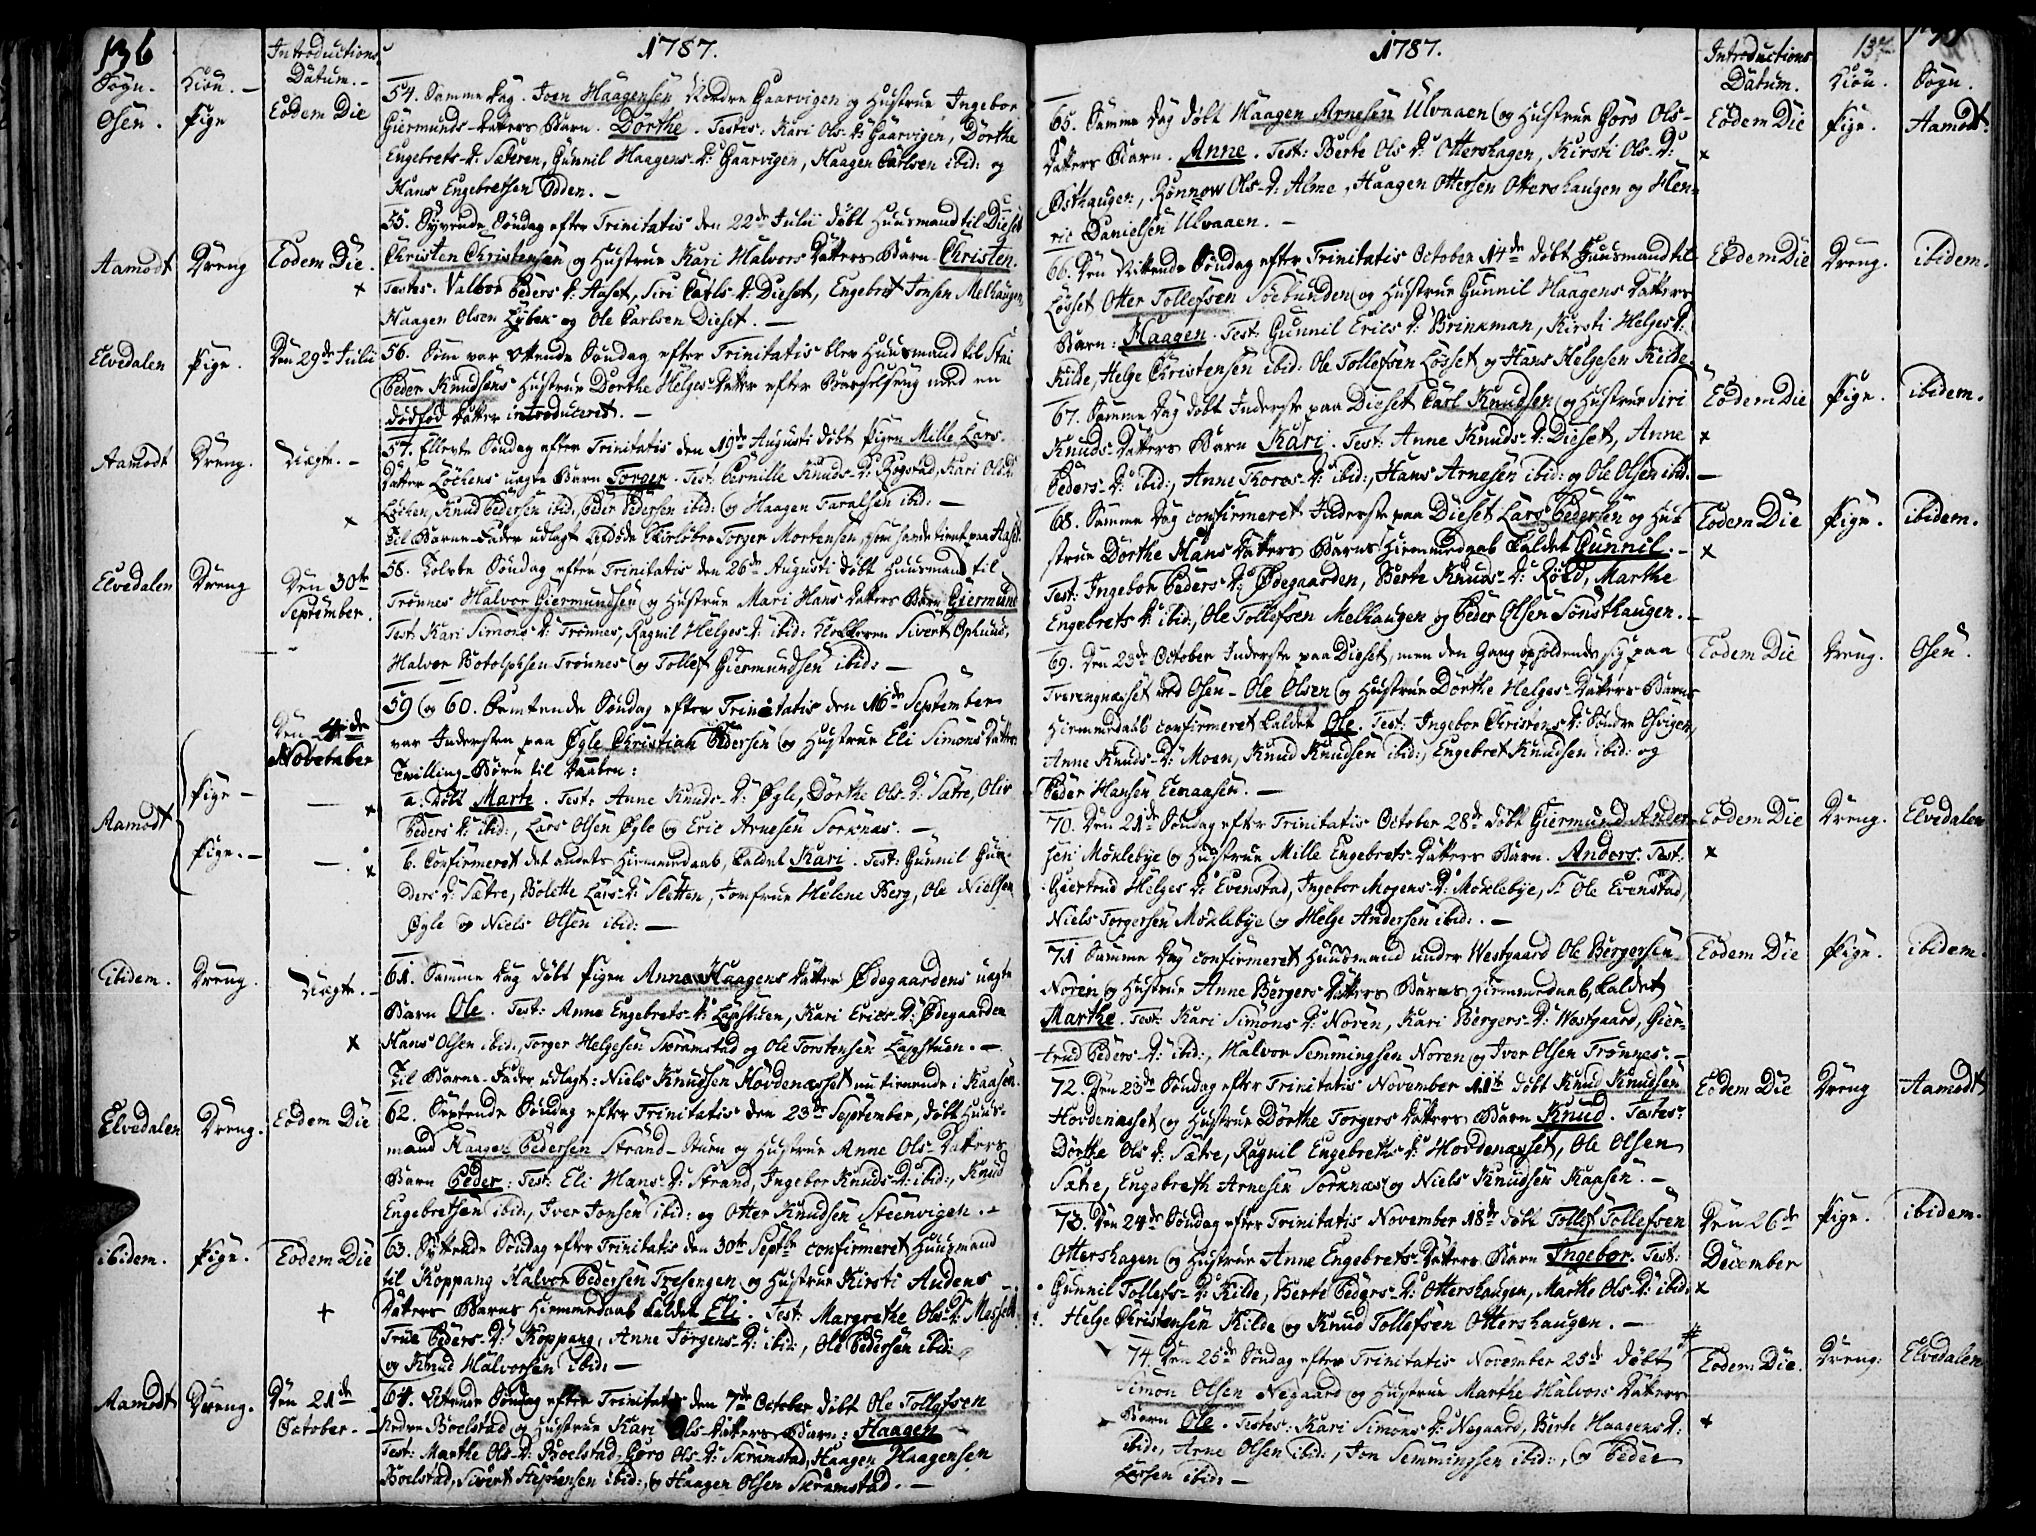 136
1787.
Sogn. Kiön. Introductions Datum.
Osen. Pige Eodem Die
54. Samme Dag. Joen Haagensen Nordre Gaarvigen og Hustrue Ingebor
Giermunds-Datters Barn. Dörthe. Testes: Kari Ols-D: Gaarvigen, Dörthe
Engebrets-D: Sæteren, Gunnil Haagens-D: Gaarvigen, Haagen Carlsen ibid: og
Hans Engebretsen Odden.
55. Syvende Söndag efter Trinitatis den 22de Julii döbt Huusmand til Dieset
Aamodt Dreng Eodem Die.
Christen Christensen og Hustrue Kari Halvors Datters Barn Christen.
Testes: Valbor Peders D: Aaset, Siri Carls D: Dieset, Engebret Jonsen Melhaugen
Haagen Olsen Lybek og Ole Carlsen Dieset.
Elvedalen Pige. Den 29de Julii
56. Som var ottende Söndag efter Trinitatis blev Huusmand til Stai
Peder Knudsens Hustrue Dorthe Helges-Datter efter Barselseng med en
dödföd Datter introduceret.
Aamodt Dreng. Uægte.
57. Ellevte Söndag efter Trinitatis den 19de Augusti döbt Pigen Mille Lars-
Datter Löchens uægte Barn Torger. Test: Pernille Knuds-D: Rogstad, Kari Ols-D:
Löchen, Knud Pedersen ibid, Peder Pedersen ibid: og Haagen Taralsen ibid:
Til Barne-Fader udlagt Torger Mortensen som tient paa Aaset.
Elvedalen Dreng Den 30te September.
58. Tolvte Söndag efter Trinitatis den 26de Augusti döbt Huusmand til
Trönnes Halvor Giermundsen og Hustrue Mari Hans Datters Barn Giermund
Test: Kari Simons D: Trönnes, Ragnil Helges-D: ibid: Klokkeren Sivert Ophuus,
Halvor Botolphsen Trönnes og Tollef Giermundsen ibid:
59 og 60. Femtende Söndag efter Trinitatis den 16de September
Den 4de November
var Indersten paa Ögle Christian Pedersen og Hustrue Eli Simons Datters
Tvilling-Börn til Daaben:
Aamodt Pige
a. Döbt Marte. Test: Anne Knuds-D: Ögle, Dörthe Ols-D: Sætre, Oliv
Peders D: ibid:, Lars Olsen Ögle og Eric Arnesen Sorknæs.
Pige.
b. Confirmeret det andets Hiemmedaab, kaldet Kari. Test: Gunnil Gun-
ders D: Sætre, Bolette Lars-D: Sletten, Jomfrue Helene Berg, Ole Nielsen
Ögle og Niels Olsen ibid:
ibidem. Dreng. Uægte.
61. Samme Dag döbt Pigen Anne Haagens Datter Ödegaardens uægte
Barn Ole. Test: Anne Engebrets-D: Lapstuen, Kari Erics-D: Ödegaarden
Hans Olsen ibid:, Torger Helgesen Skramstad og Ole Torstensen Lapstuen.
Til Barne-Fader udlagt: Niels Knudsen Hovdenæsset nu tienende i Kaasen
Elvedalen Dreng. Eodem Die
62. Sextende Söndag efter Trinitatis den 23de September, döbt Huus-
mand Haagen Pedersen Strand-Stuen og Hustrue Anne Ols-Datters
Barn Peder: Test: Eli Hans-D: Strand, Ingebor Knuds-D: ibid:, Knud
Engebretsen ibid:, Iver Jonsen ibid: og Otter Knudsen Steenvigen.
ibidem. Pige. Eodem Die
63. Syttende Söndag efter Trinitatis den 30te Septbr confirmeret Huusmand
til Koppang Halvor Pedersen Tresengen og Hustrue Kirsti Audens
Datters Barns Hiemmedaab kaldet Eli Test: Margrethe Ols-D: Messelt,
True Peders-D: Koppang, Anne Jörgens-D: ibid:, Ole Pedersen ibid:
og Knud Halvorsen ibid:
Aamodt Dreng. Den 21de October.
64. Attende Söndag efter Trinitatis den 7de October döbt Ole Tollefsen
Nedre Boelstad og Hustrue Kari Ols-Datters Barn: Haagen
Test: Marthe Ols-D: Boelstad, Goro Ols-D: Skramstad, Haagen Haagensen
Boelstad, Sivert Stephensen ibid:, og Haagen Olsen Skramstad.
1787.
137
Introductions Datum. Kiön. Sogn.
65. Samme Dag döbt Haagen Arnesen Ulvaaen og Hustrue Goro Ols-
Eodem Die Pige. Aamodt.
Datters Barn. Anne. Test: Berte Ols D: Ottershagen, Kirsti Ols-D:
Östhaugen, Rönnow Ols-D: Alme, Haagen Ottersen Ottershaugen og Hen-
ric Danielsen Ulvaaen.
66. Den Nittende Söndag efter Trinitatis October 14de döbt Huusmand til
Eodem Die Dreng. ibidem.
Lösset Otter Tollefsen Söebunden og Hustrue Gunnil Haagens Datters
Barn: Haagen. Test: Gunnil Erics D: Brinkman, Kirsti Helges D:
Kilde, Helge Christensen ibid: Ole Tollefsen Lösset og Hans Helgesen Kilde.
67. Samme Dag döbt Inderste paa Dieset Carl Knudsen og Hustrue Siri
Eodem Die Pige. ibidem.
Knuds-Datters Barn Kari. Test: Anne Knuds-D: Dieset, Anne
Peders-D: ibid:, Anne Thoras-D: ibid:, Hans Arnesen ibid: og Ole Olsen ibid:
68. Samme Dag confirmeret Inderste paa Dieset Lars Pedersen og Hu-
Eodem Die Pige. ibidem.
strue Dörthe Hans Datters Barns Hiemmedaab kaldet Gunnil.
Test: Ingebor Peders D: Ödegaarden, Berte Knuds-D: Röed, Marthe
Engebrets D: ibid:, Ole Tollefsen Melhaugen og Peder Olsen Sönsthaugen.
69. Den 23de October Inderste paa Dieset, men den Gang opholdende sig paa
Eodem Die Dreng. Osen.
Tverengnæsset ved Osen-Ole Olsen og Hustrue Dorthe Helges-Datters Barns
Hiemmedaab confirmeret kaldet Ole. Test: Ingebor Christens D: Söndre Osvigen,
Anne Knuds-D: Moen, Knud Knudsen ibid:, Engebret Knudsen ibid: og
Peder Hansen Eenaasen.
70. Den 21de Söndag efter Trinitatis October 28de döbt Giermund Ander-
Eodem Die Dreng. Elvedalen
sen Moxlebye og Hustrue Mille Engebrets-Datters Barn. Anders: Test:
Giertrud Helges D: Evenstad, Ingebor Mogens-D: Moxlebye, S: Ole Evenstad,
Niels Torgersen Moxlebye og Helge Andersen ibid:.
71 Samme Dag confirmeret Huusmand under Westgaard Ole Bergersen
Eodem Die Pige. ibidem.
Noren og Hustrue Anne Bergers Datters Barns Hiemmedaab, kaldet
Marthe. Test: Kari Simons D: Noren, Kari Bergers-D: Westgaard, Gier-
trud Peders-D: ibid:, Halvor Semmingsen Noren og Iver Olsen Trönnes.
72. Den 23de Söndag efter Trinitatis November 11te döbt Knud Knudsen
Eodem Die Dreng Aamodt
Hovdenæsset og Hustrue Dörthe Torgers Datters Barn Knud. Testes:
Dörthe Ols D: Sætre, Ragnil Engebreths D: Hovdenæsset, Ole Olsen
Sætre, Engebreth Arnesen Sorknæs og Niels Knudsen Kaasen.
73. Den 24de Söndag efter Trinitatis November 18de döbt Tollef Tollefsen
Den 26de December Pige. ibidem.
Ottershagen og Hustrue Anne Engebrets-Datters Barn Ingebor. Test:
Gunnil Tollefs-D: Kilde, Berte Peders-D: Ottershaugen, Marthe Ols-D: ibid:
Helge Christensen Kilde og Knud Tollefsen Ottershaugen.
74. Den 25de Söndag efter Trinitatis November 25de döbt
Eodem Die. Dreng. Elvedalen
Simon Olsen Negaard og Hustrue Marthe Halvors Datters
Barn Ole. Testes: Kari Simons D: Negaard, Berte Haagens D:
ibid:, Arne Olsen ibid:, Jon Semmingsen ibid:, og Peder
Larsen ibid: